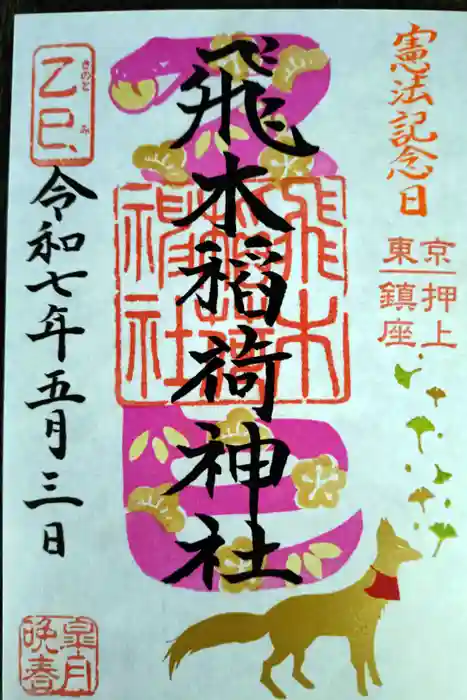 憲法記念日
東京
押上
鎮座
飛木稲荷神社
飛木稲荷神社
乙巳
きのと
み
令和七年五月三日
皐月
晩春